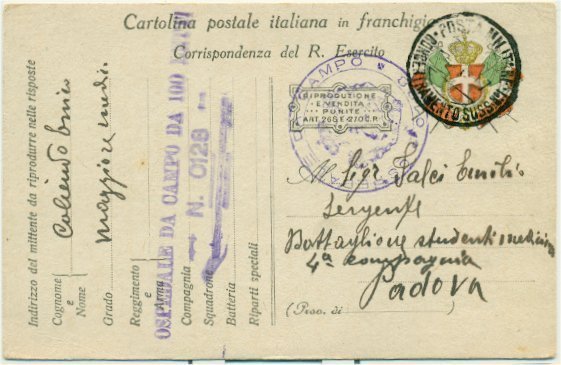 Cartolina postale italiana in franchigia
Corrispondenza del R. Esercito
RIPRODUZIONE
E VENDITA
PUNITE
ART. 268 E 270 C.P.
CAMPO
POSTA MILITARE
Indirizzo del mittente da riprodurre nelle risposte
Cognome
e
Nome
Grado maggiore medi.
Reggimento
e
Arma
Compagnia
Squadrone
Batteria
Riparti speciali
OSPEDALE DA CAMPO DA 100
N. 0128
Al Sigr Salci Emilio
Sergente
Battaglione studenti medicina
4a compagnia
Padova
(Prov. di